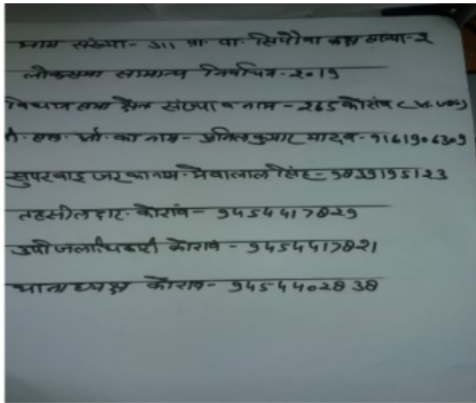 भाग संख्या- 311 प्रा. पा. सिपौवा कक्ष संख्या-2
लोकसभा सामान्य निर्वाचन-2019
विधान सभा क्षेत्र संख्या व नाम - 265 कोरांव
बी. एल. ओ. का नाम- अनिल कुमार यादव- 9161906309
सुपरवाइजर का नाम- मेवालाल सिंह- 9839195123
तहसीलदार- कोरांव- 9454417829
उपजिलाधिकारी कोरांव- 9454417821
थानाध्यक्ष कोरांव- 9454402838